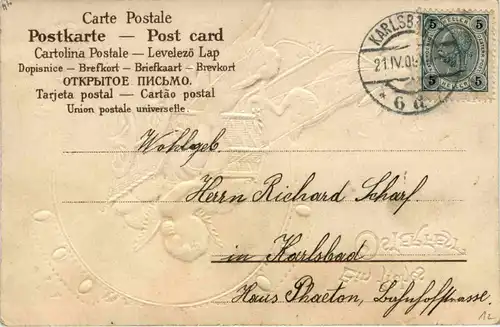 Carte Postale
Postkarte — Post card
Cartolina Postale — Levelező Lap
Dopisnice — Brefkort — Briefkaart — Brevkort
ОТКРЫТОЕ ПИСЬМО.
Tarjeta postal — Cartão postal
Union postale universelle.
5 5
HELLER HELLER
5 5
KARLSBA
21.IV.05
* 6 d *
Wohlgeb.
Herrn Richard Scharf.
in Karlsbad
Haus Phaeton, Bahnhofstrasse.
12